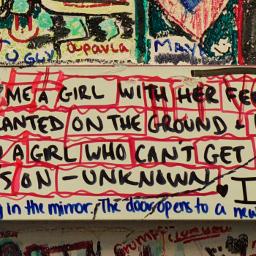 UGLY apavla MAYK
ME A GIRL WITH HER FEE
ANTED ON THE GROUND &
A GIRL WHO CAN'T GET
S ON - UNKNOWN I
in the mirror. The door opens to a new